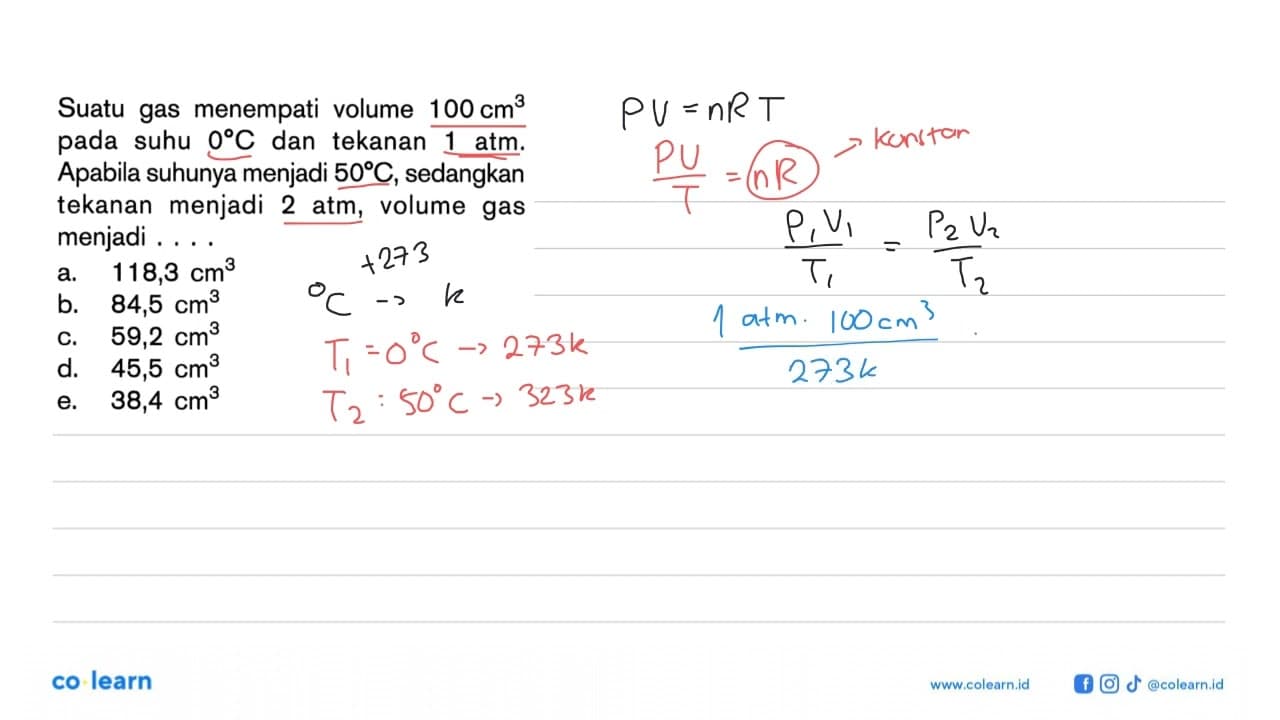 Suatu gas menempati volume 100 cm³
pada suhu 0°C dan tekanan 1 atm.
Apabila suhunya menjadi 50°C, sedangkan
tekanan menjadi 2 atm, volume gas
menjadi . . . .
a. 118,3 cm³
b. 84,5 cm³
c. 59,2 cm³
d. 45,5 cm³
e. 38,4 cm³
+273
°C -> k
T₁ = 0°C -> 273k
T₂ : 50°C -> 323k
PV = nRT
PV/T = nR -> konstan
P₁V₁/T₁ = P₂V₂/T₂
1 atm. 100cm³
273k
co learn
www.colearn.id
@colearn.id